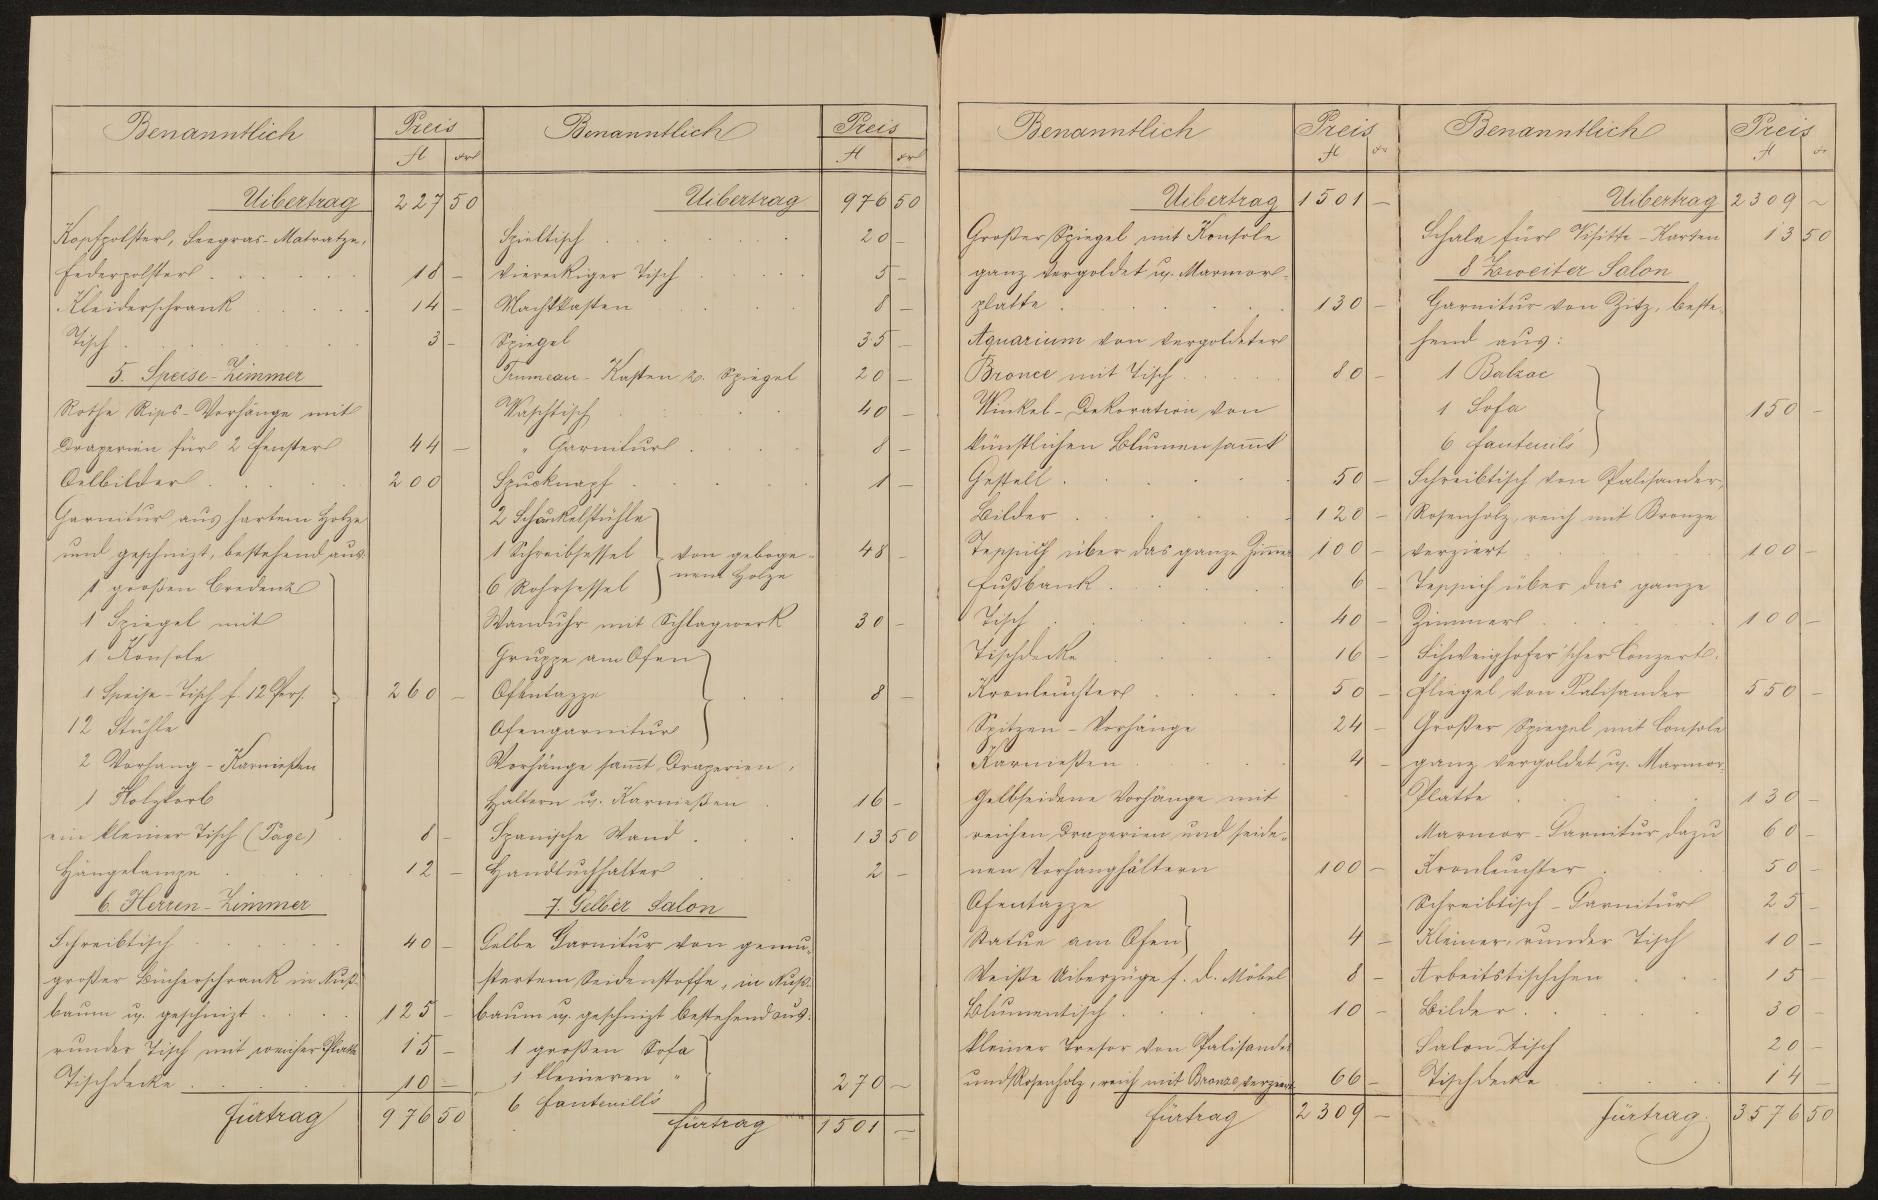 Benanntlich Preis
fl kr
Uibertrag 227 50
Kopfpolster, Seegras-Matratze,
Federpolster . . . . . 18 –
Kleiderschrank . . . . . 14 –
Tisch . . . . . . . 3 –
5. Speise-Zimmer
Rothe Rips-Vorhänge mit
Draperien für 2 Fenster 44 –
Oelbilder . . . . . 200
Garnitur aus hartem Holze
und geschnizt, bestehend aus:
1 großen Credenz
1 Spiegel mit
1 Konsole
1 Speise-Tisch f. 12 Pers. 260 –
12 Stühle
2 Vorhang-Karnießen
1 Holzkorb
ein kleiner Tisch (Page) . 8 –
Hängelampe . . . . 12 –
6. Herren-Zimmer
Schreibtisch . . . . . 40 –
großer Bücherschrank in Nuß-
baum u. geschnizt . . . . 125 –
runder Tisch mit weicher Platte 15 –
Tischdecke . . . . . . 10 –
Fürtrag 976 50
Benanntlich Preis
fl kr
Uibertrag 976 50
Spieltisch . . . . . . 20 –
viereckiger Tisch . . . . 5 –
Nachtkasten . . . . 8 –
Spiegel 35 –
Trumeau-Kasten z. Spiegel 20 –
Waschtisch . . . . 40 –
" Garnitur . . . . 8 –
Spucknapf . . . . . 1 –
2 Schaukelstühle
1 Schreibsessel von geboge- 48 –
6 Rohrsessel nem Holze
Wanduhr mit Schlagwerk 30 –
Gruppe am Ofen
Ofentazze . . 8 –
Ofengarnitur
Vorhänge sammt Draperien,
Haltern u. Karnießen . 16 –
Spanische Wand . . . 13 50
Handtuchhalter . . . 2 –
7. Gelber Salon
Gelbe Garnitur von gemu-
stertem Seidenstoffe, in Nuß-
baum u. geschnizt bestehend aus:
1 großen Sofa
1 kleineren " 270 –
6 Fauteuills
Fürtrag 1501 –
Benanntlich Preis
fl kr
Uibertrag 1501 –
Großer Spiegel mit Konsole
ganz vergoldet u. Marmor-
platte . . . . . . 130 –
Aquarium von vergoldeter
Bronce mit Tisch . . . . 80 –
Winkel-Dekoration von
künstlichen Blumen sammt
Gestell . . . . . . 50 –
Bilder . . . . . . 120 –
Teppich über das ganze Zimmer 100 –
Fußbank . . . . . 6 –
Tisch . . . . . . 40 –
Tischdecke . . . . 16 –
Kronleuchter . . . . 50 –
Spitzen-Vorhänge 24 –
Karnießen . . . . 4 –
Gelbseidene Vorhänge mit
reichen Draperien und seide-
nen Vorhanghältern 100 –
Ofentazze
Statue am Ofen 4 –
Weiße Uiberzüge f. d. Möbel 8 –
Blumentisch . . . . . 10 –
kleiner Tresor von Palisander
und Rosenholz, reich mit Bronze verziert 66 –
Fürtrag 2309 –
Benanntlich Preis
fl kr
Uibertrag 2309 –
Schale für Visitte-Karten 13 50
8 Zweiter Salon
Garnitur von Zitz, beste-
hend aus:
1 Balzac
1 Sofa 150 –
6 Fauteuils
Schreibtisch von Palisander,
Rosenholz, reich mit Bronze
verziert . . . . . 100 –
Teppich über das ganze
Zimmer . . . . . 100 –
Schweighofer'scher Conzert-
Fliegel von Palisander 550 –
Großer Spiegel mit Console
ganz vergoldet u. Marmor-
Platte . . . . . 130 –
Marmor-Garnitur dazu 60 –
Kronleuchter . . . 50 –
Schreibtisch-Garnitur 25 –
Kleiner, runder Tisch 10 –
Arbeitstischchen . . . 15 –
Bilder . . . . . 30 –
Salon-Tisch 20 –
Tischdecke . . . . 14 –
Fürtrag. 3576 50